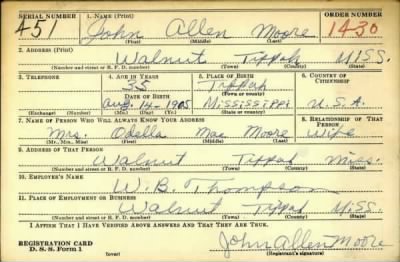 SERIAL NUMBER 1. NAME (Print) ORDER NUMBER
451 John Allen Moore 1430
(First) (Middle) (Last)
2. ADDRESS (Print)
Walnut Tippah Miss.
(Number and street or R. F. D. number) (Town) (County) (State)
3. TELEPHONE 4. AGE IN YEARS 5. PLACE OF BIRTH 6. COUNTRY OF CITIZENSHIP
35 Tippah
DATE OF BIRTH (Town or county)
Aug. 14-1905 Mississippi U.S.A.
(Exchange) (Number) (Mo.) (Day) (Yr.) (State or country)
7. NAME OF PERSON WHO WILL ALWAYS KNOW YOUR ADDRESS 8. RELATIONSHIP OF THAT PERSON
Mrs. Odella Mae Moore Wife
(Mr., Mrs., Miss) (First) (Middle) (Last)
9. ADDRESS OF THAT PERSON
Walnut Tippah Miss.
(Number and street or R. F. D. number) (Town) (County) (State)
10. EMPLOYER'S NAME
W. B. Thompson
11. PLACE OF EMPLOYMENT OR BUSINESS
Walnut Tippah Miss.
(Number and street or R. F. D. number) (Town) (County) (State)
I AFFIRM THAT I HAVE VERIFIED ABOVE ANSWERS AND THAT THEY ARE TRUE.
REGISTRATION CARD John Allen Moore
D. S. S. Form 1 (over) (Registrant's signature)